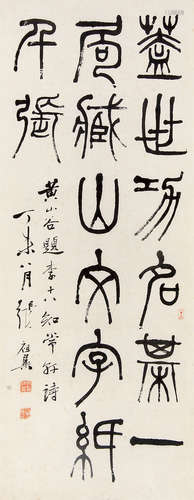 蓋世功名棊一
局藏山文字紙
千張
黃山谷題李十八知常軒詩
丁未八月張祖翼